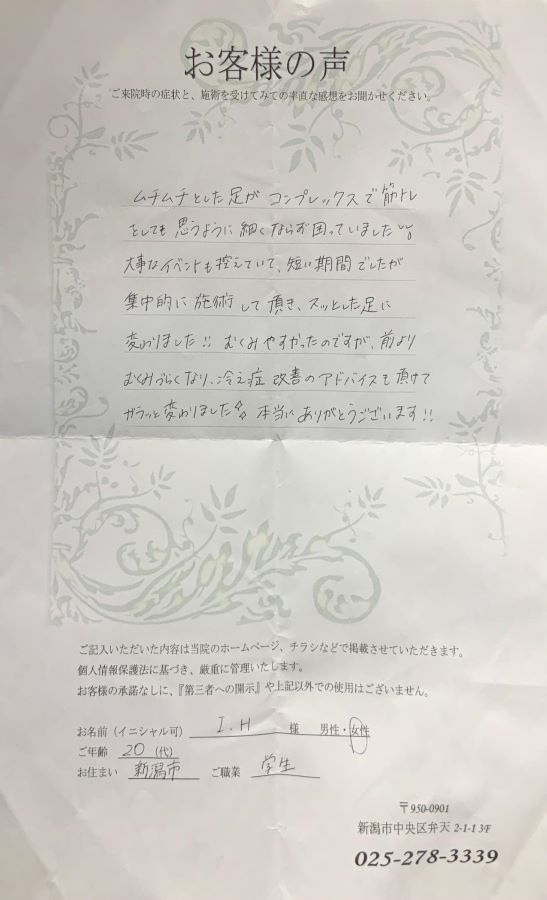 お客様の声
ご来院時の症状と、施術を受けてみての率直な感想をお聞かせください。
ムチムチとした足が コンプレックスで筋トレ
をしても 思うように 細くならず困っていました
大事なイベントも控えていて、短い期間でしたが
集中的に 施術して頂き、スッとした足に
変わりました!! むくみやすかったのですが、前より
むくみづらくなり、冷え症 改善のアドバイスも頂けて
ガラッと変わりました 本当に ありがとうございます!!
ご記入いただいた内容は当院のホームページ、チラシなどで掲載させていただきます。
個人情報保護法に基づき、厳重に管理いたします。
お客様の承諾なしに、『第三者への開示』や上記以外での使用はございません。
お名前(イニシャル可) I.H 様 男性・女性
ご年齢 20 (代)
お住まい 新潟市 ご職業 学生
〒950-0901
新潟市中央区弁天 2-1-1 3F
025-278-3339